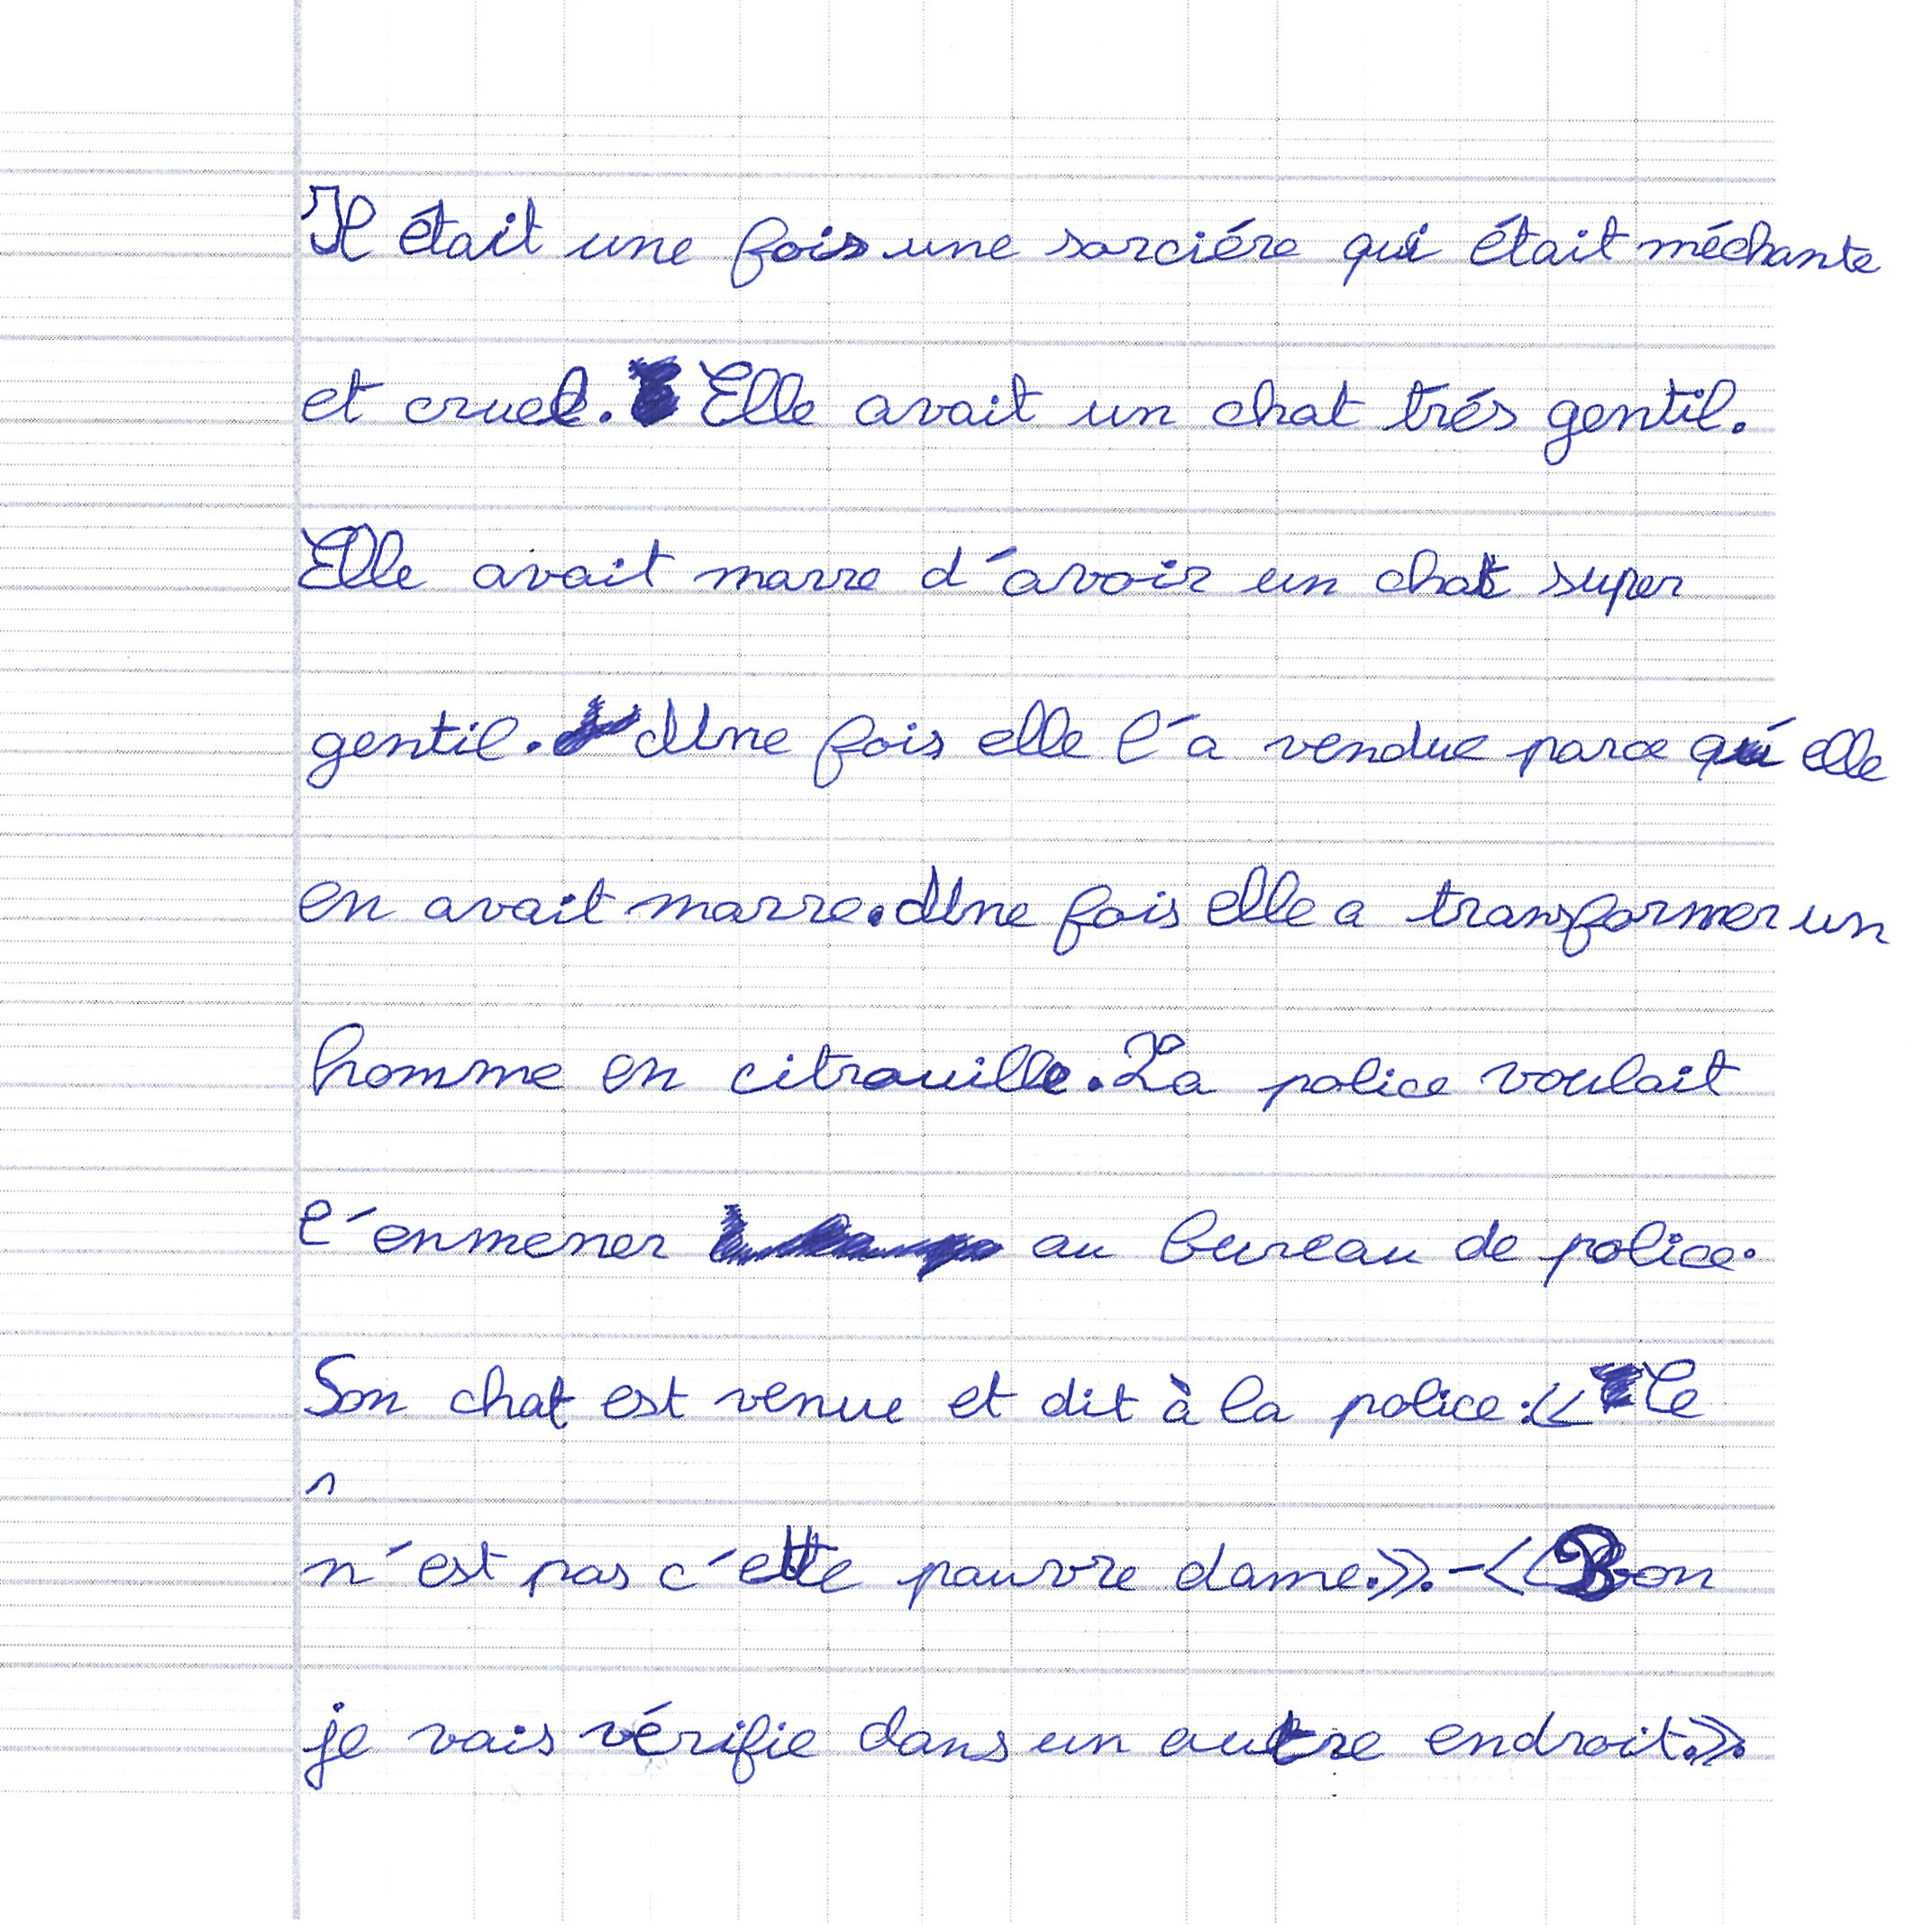 Il était une fois une sorciére qui était méchante
et cruel. Elle avait un chat trés gentil.
Elle avait marre d'avoir un chat super
gentil. Une fois elle l'a vendue parce qu'elle
en avait marre. Une fois elle a transformer un
homme en citrouille. La police voulait
l'enmener au bureau de police.
Son chat est venue et dit à la police : « Ce
n'est pas c'ette pauvre dame. ». - « Bon
je vais vérifie dans un autre endroit. »